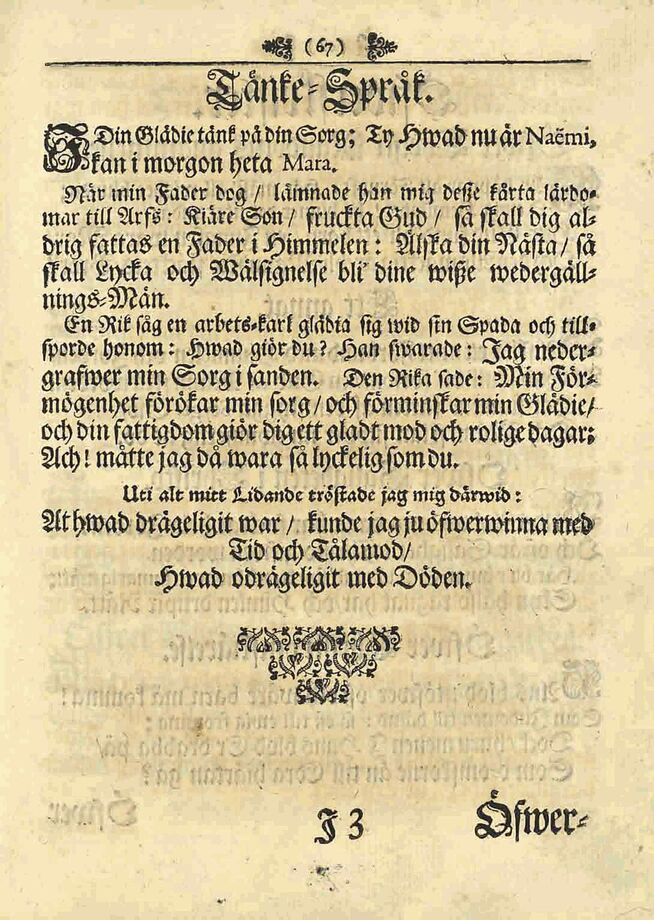 (67)
Tänke-Språk.
I Din Glädie tänk på din Sorg; Ty Hwad nu är Naëmi,
kan i morgon heta Mara.
När min Fader dog / lämnade han mig deße kärta lärdo-
mar till Arfs: Kiäre Son / fruckta Gud / så skall dig al-
drig fattas en Fader i Himmelen: Älska din Nästa / så
skall Lycka och Wälsignelse bli dine wiße wedergäll-
nings-Män.
En Rik såg en arbets-karl glädia sig wid sin Spada och till-
sporde honom: Hwad giör du? Han swarade: Jag neder-
grafwer min Sorg i sanden. Den Rika sade: Min För-
mögenhet förökar min sorg / och förminskar min Glädie /
och din fattigdom giör dig ett gladt mod och rolige dagar:
Ach! måtte jag då wara så lyckelig som du.
Uti alt mitt Lidande tröstade jag mig därwid:
At hwad drägeligit war / kunde jag ju öfwerwinna med
Tid och Tålamod /
Hwad odrägeligit med Döden.
J 3
Öfwer-